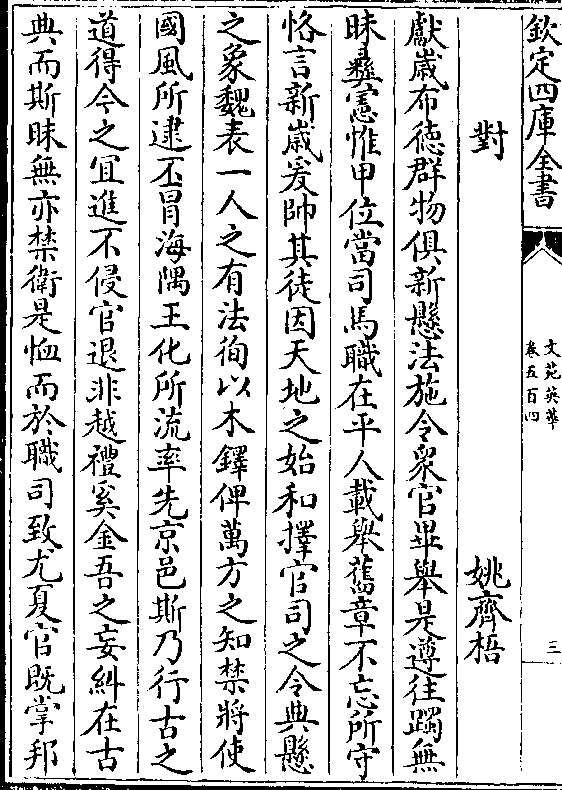 欽定四庫全書
文苑英華
卷五百四
三
對
姚齊梧
獻歲布德群物俱新懸法施令衆官畢舉是遵往躅無
昧彝憲惟甲位當司馬職在平人載舉舊章不忘所守
恪言新歲爰帥其徒因天地之始和擇官司之令典懸
之象魏表一人之有法徇以木鐸俾萬方之知禁將使
國風所逮丕冒海隅王化所流率先京邑斯乃行古之
道得今之宜進不侵官退非越禮奚金吾之妄糾在古
典而斯昧無亦禁衛是恤而於職司致尤夏官既掌邦